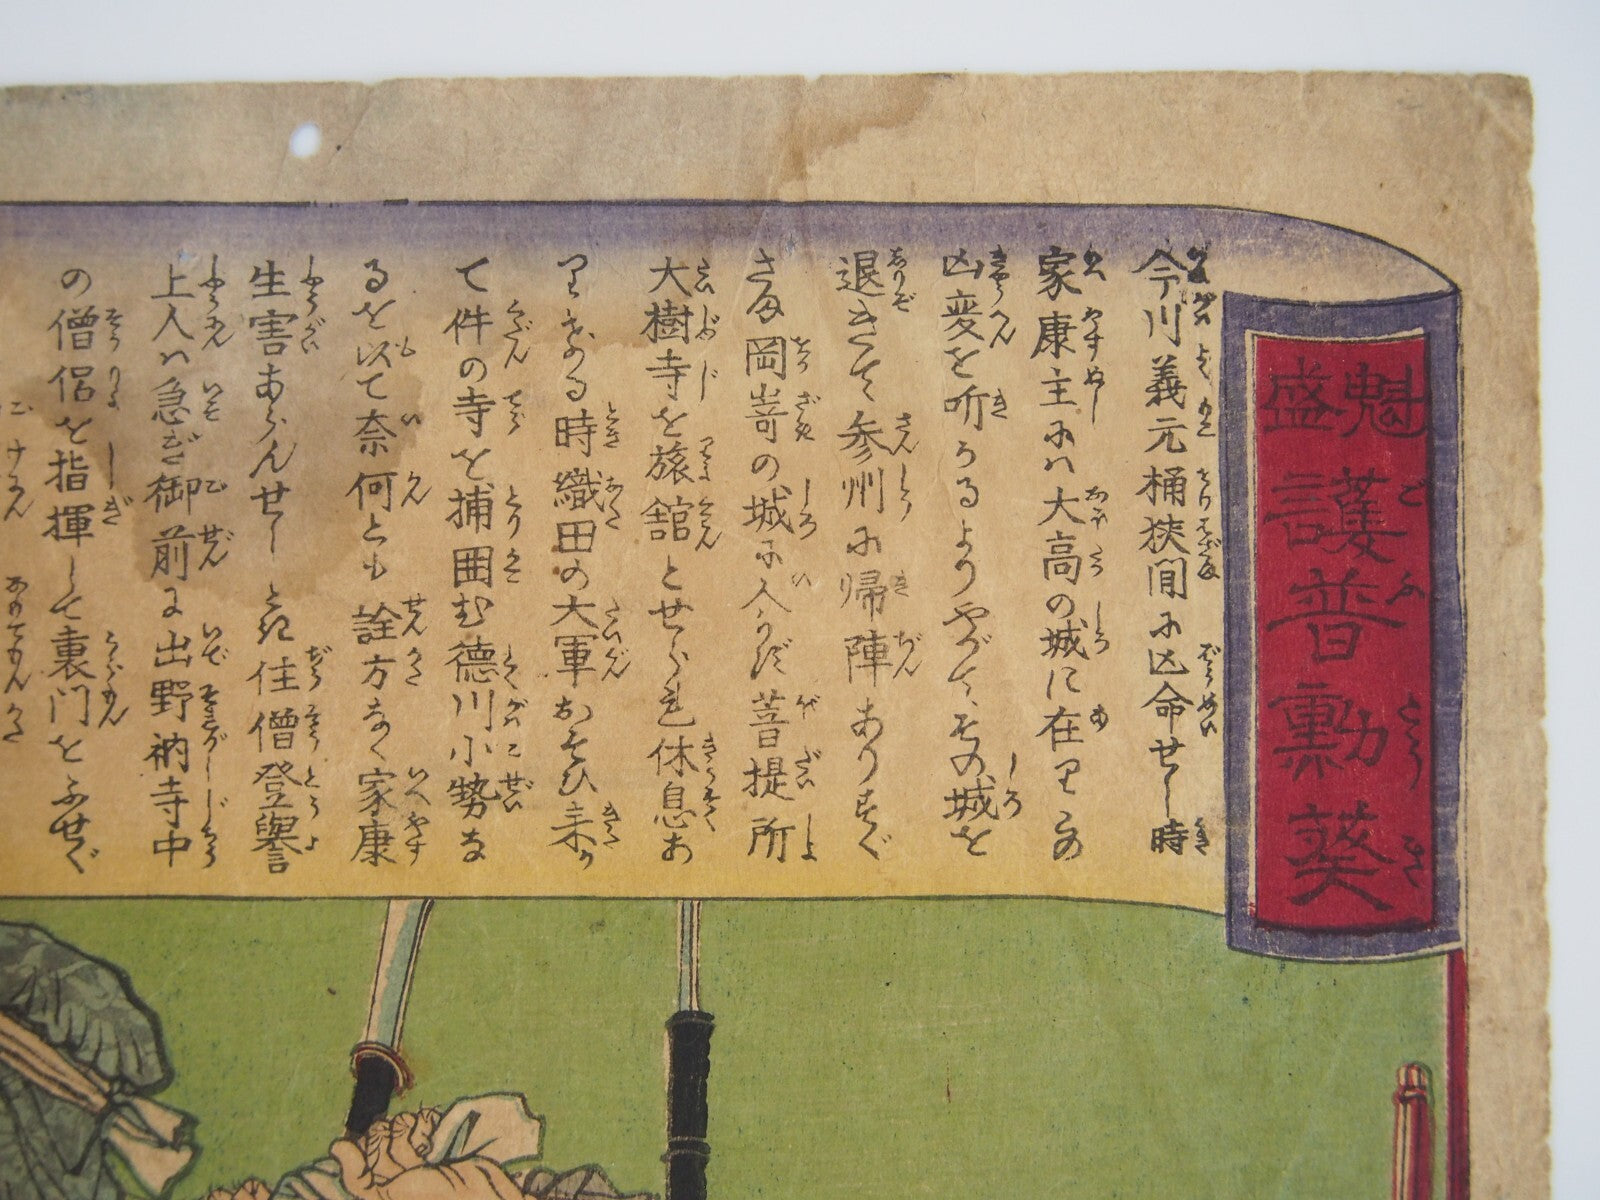 魁
盛
護普勲葵
今川義元桶狭間に凶命せし時
家康主にハ大高の城に在りこの
凶変を听うるよりやがて、その城を
退きて参州に帰陣ありすぐ
さま岡嵜の城に入らず菩提所
大樹寺を旅舘とせられ休息お
りある時織田の大軍おそひ来り
て件の寺を捕囲む德川小勢な
るを以て奈何とも詮方なく家康
生害あらんせしとき住僧登譽
上人ハ急ぎ御前に出野衲寺中
の僧侶を指揮して裏門をふせぐ